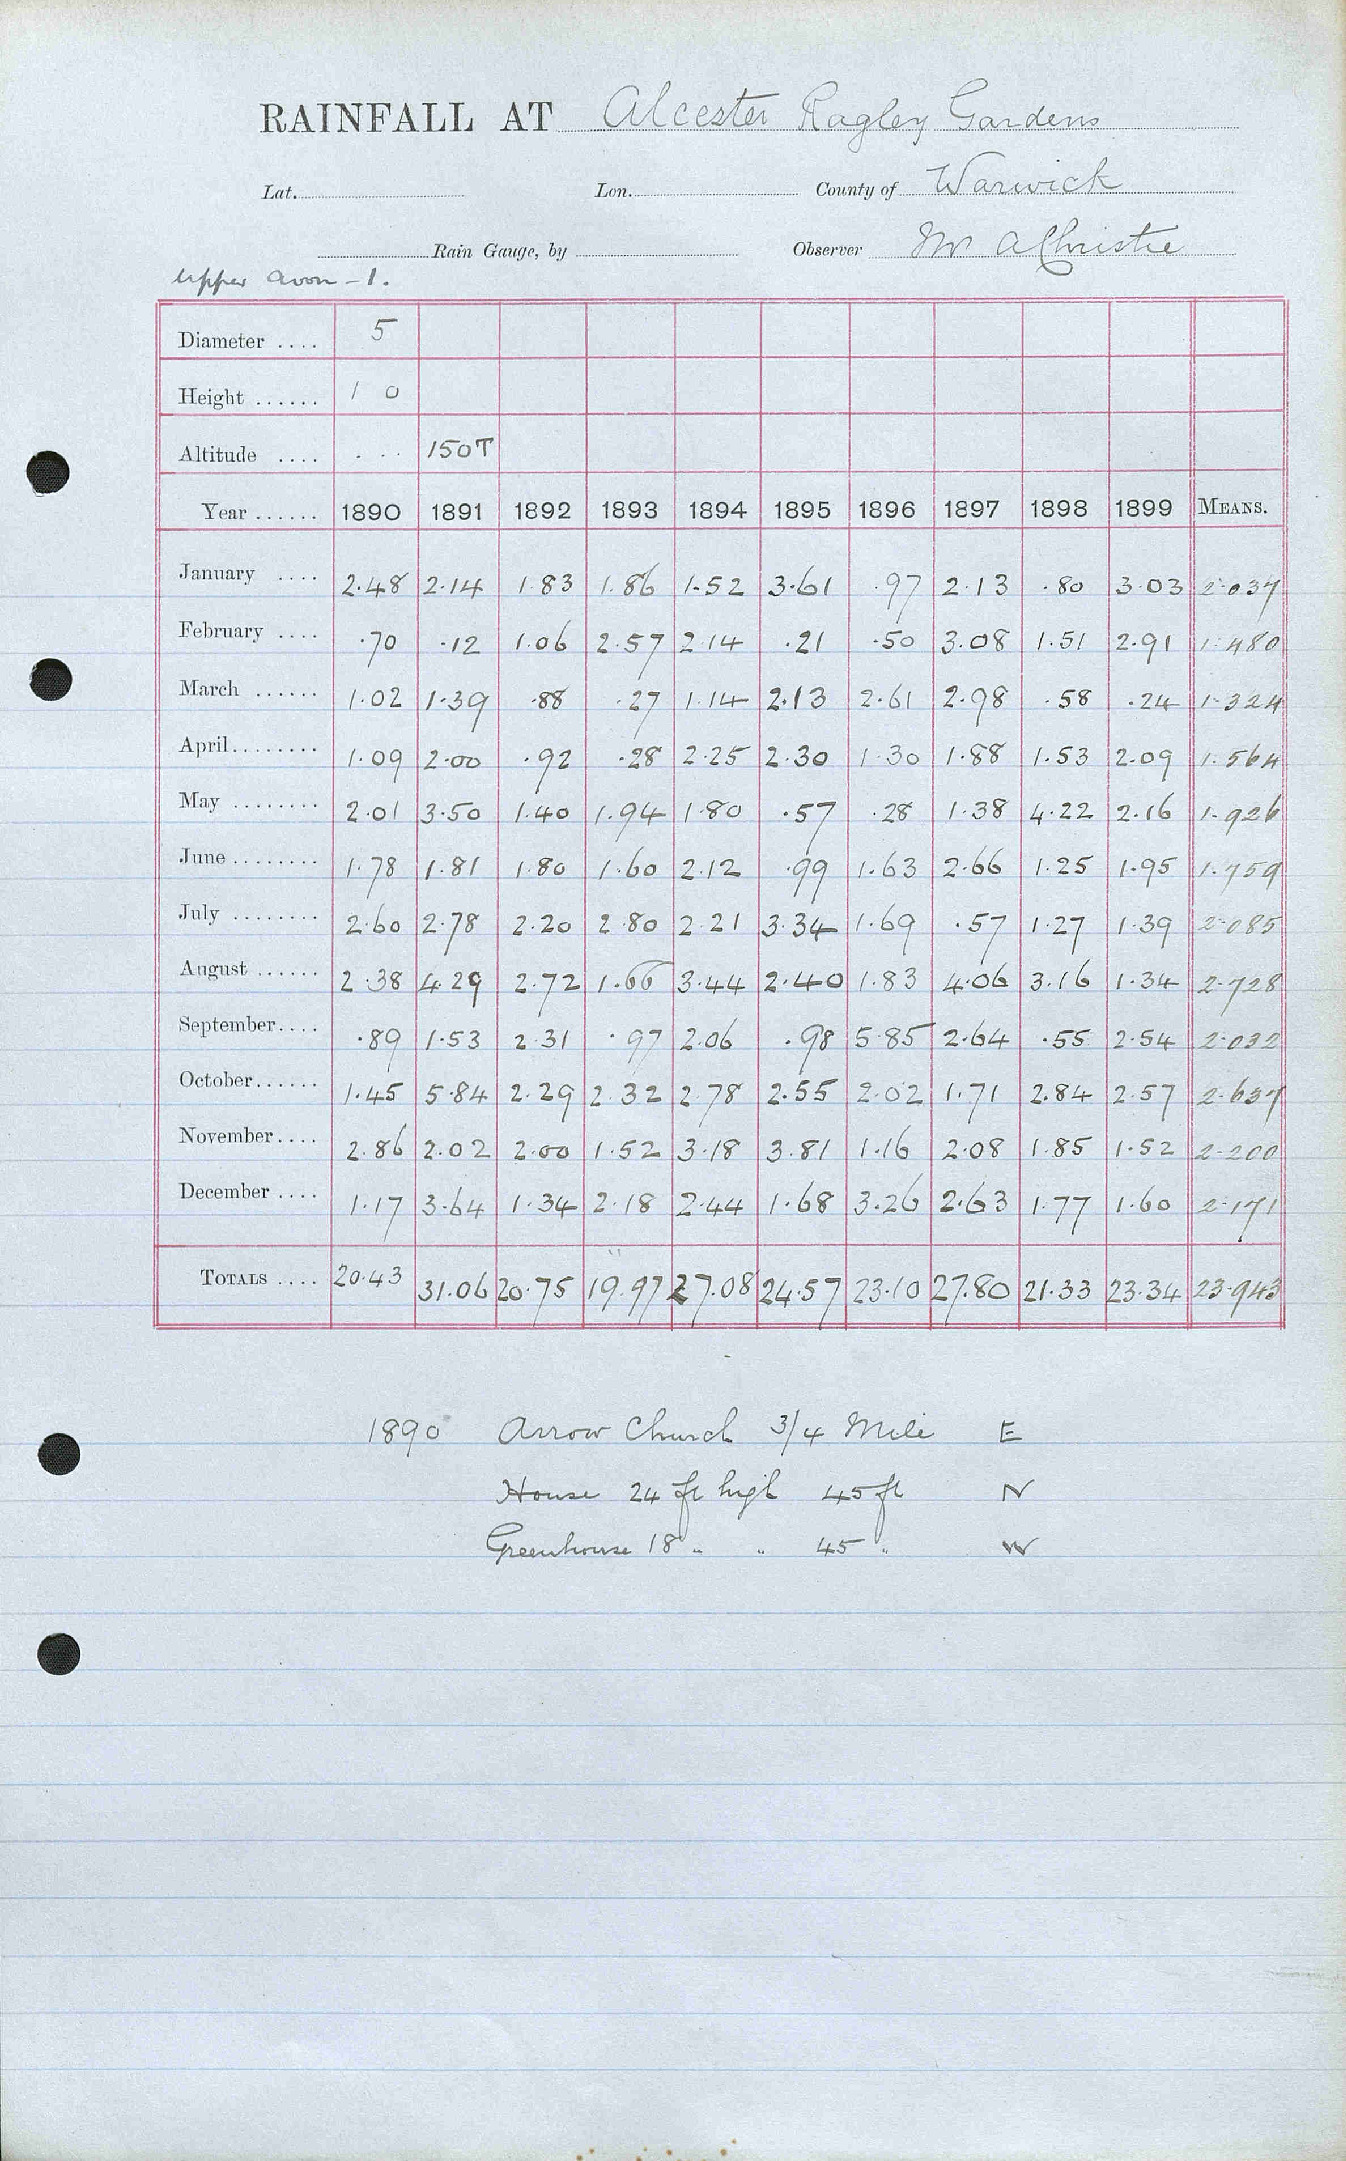 RAINFALL AT Alcester Ragley Gardens
Lat. Lon. County of Warwick
Rain Gauge, by Observer Mr A Christie
Upper Avon - 1.
Diameter .... 5
Height ...... 1 0
Altitude .... ... 150T
Year ...... 1890 1891 1892 1893 1894 1895 1896 1897 1898 1899 MEANS.
January .... 2.48 2.14 1.83 1.86 1.52 3.61 .97 2.13 .80 3.03 2.037
February .... .70 .12 1.06 2.57 2.14 .21 .50 3.08 1.51 2.91 1.480
March ...... 1.02 1.39 .88 .27 1.14 2.13 2.61 2.98 .58 .24 1.324
April........ 1.09 2.00 .92 .28 2.25 2.30 1.30 1.88 1.53 2.09 1.564
May ........ 2.01 3.50 1.40 1.94 1.80 .57 .28 1.38 4.22 2.16 1.926
June ........ 1.78 1.81 1.80 1.60 2.12 .99 1.63 2.66 1.25 1.95 1.759
July ........ 2.60 2.78 2.20 2.80 2.21 3.34 1.69 .57 1.27 1.39 2.085
August ...... 2.38 4.29 2.72 1.66 3.44 2.40 1.83 4.06 3.16 1.34 2.728
September.... .89 1.53 2.31 .97 2.06 .98 5.85 2.64 .55 2.54 2.032
October...... 1.45 5.84 2.29 2.32 2.78 2.55 2.02 1.71 2.84 2.57 2.637
November.... 2.86 2.02 2.00 1.52 3.18 3.81 1.16 2.08 1.85 1.52 2.200
December .... 1.17 3.64 1.34 2.18 2.44 1.68 3.26 2.63 1.77 1.60 2.171
TOTALS .... 20.43 31.06 20.75 19.97 27.08 24.57 23.10 27.80 21.33 23.34 23.943
1890 Arrow Church 3/4 Mile E
House 24 ft high 45 ft N
Greenhouse 18 " " 45 " W